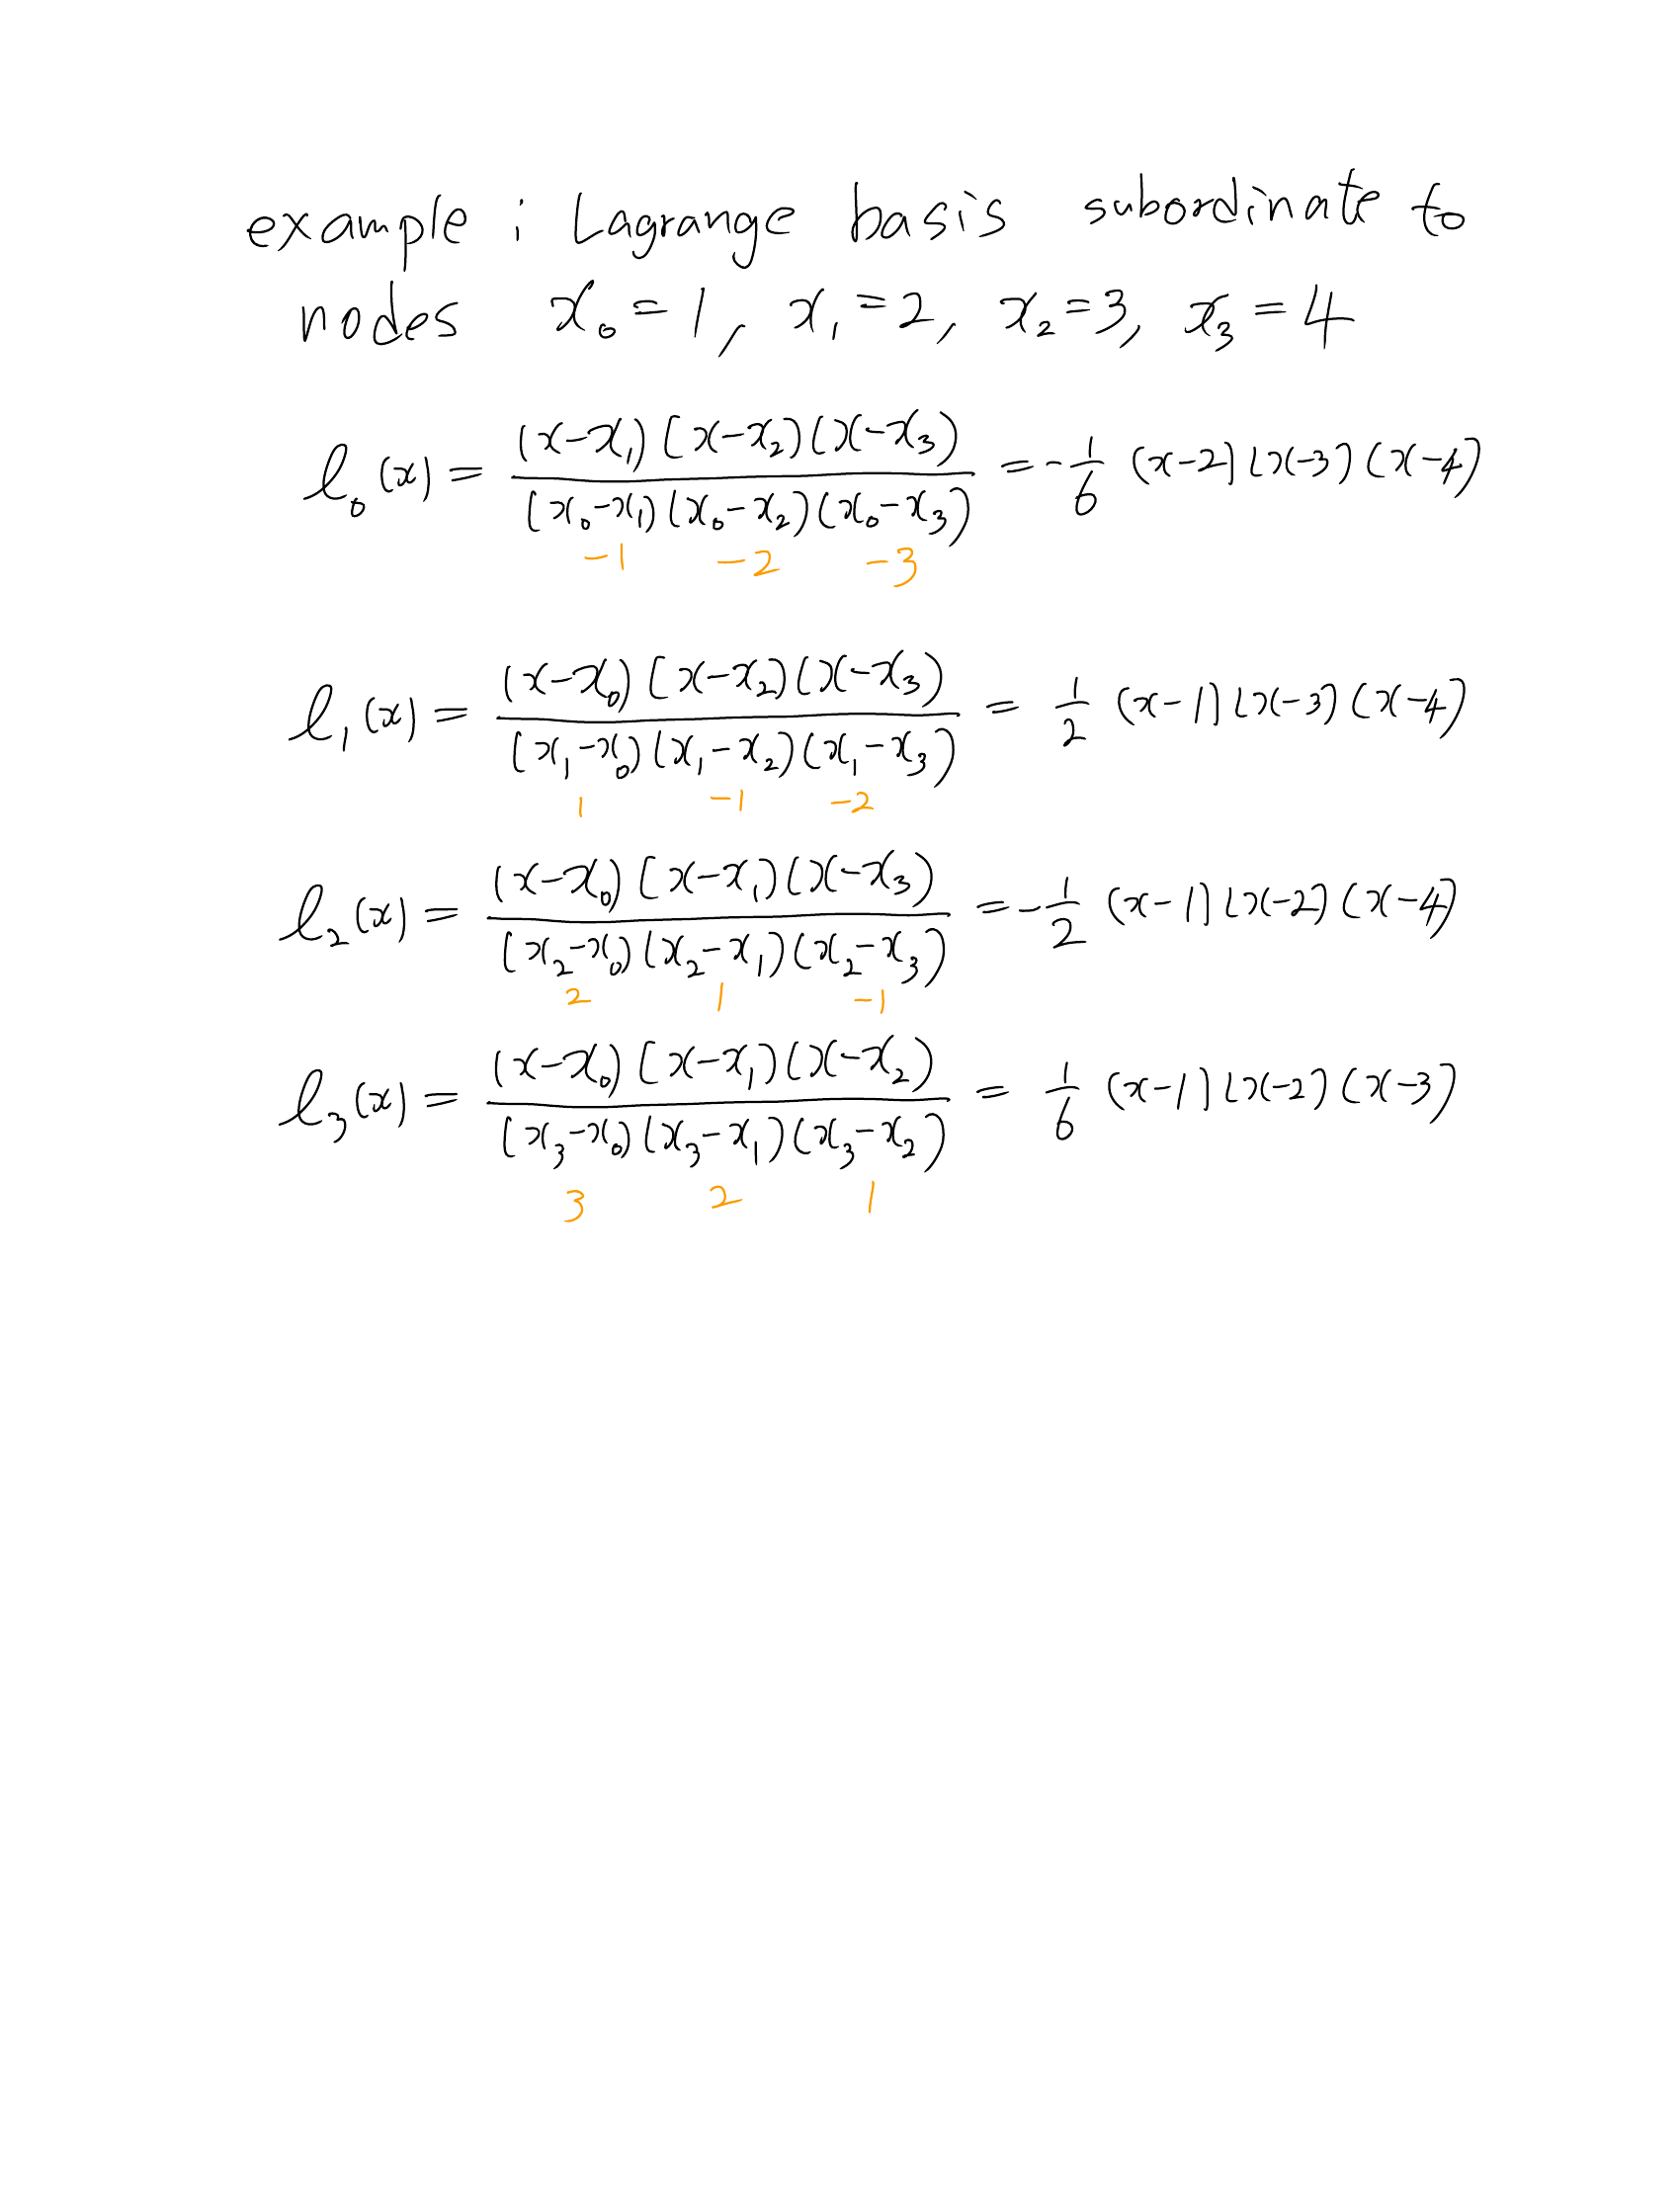 example : Lagrange basis subordinate to
nodes x₀ = 1, x₁ = 2, x₂ = 3, x₃ = 4
ℓ₀(x) = (x-x₁)(x-x₂)(x-x₃) / (x₀-x₁)(x₀-x₂)(x₀-x₃) = -1/6 (x-2)(x-3)(x-4)
-1 -2 -3
ℓ₁(x) = (x-x₀)(x-x₂)(x-x₃) / (x₁-x₀)(x₁-x₂)(x₁-x₃) = 1/2 (x-1)(x-3)(x-4)
1 -1 -2
ℓ₂(x) = (x-x₀)(x-x₁)(x-x₃) / (x₂-x₀)(x₂-x₁)(x₂-x₃) = -1/2 (x-1)(x-2)(x-4)
2 1 -1
ℓ₃(x) = (x-x₀)(x-x₁)(x-x₂) / (x₃-x₀)(x₃-x₁)(x₃-x₂) = 1/6 (x-1)(x-2)(x-3)
3 2 1